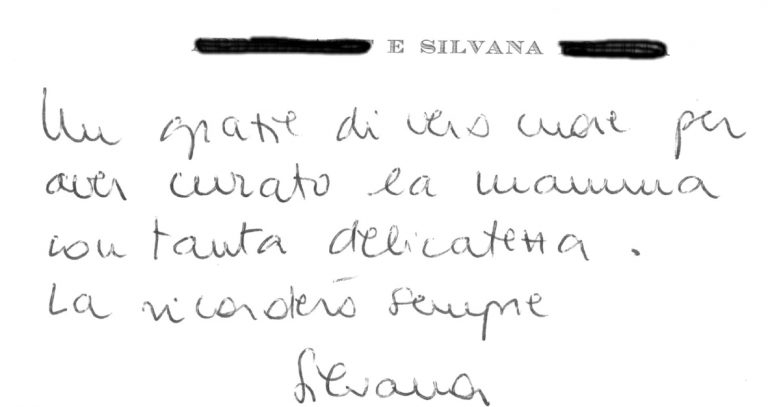 E SILVANA
Un grazie di vero cuore per
aver curato la mamma
con tanta delicatezza.
La ricorderò sempre
Silvana